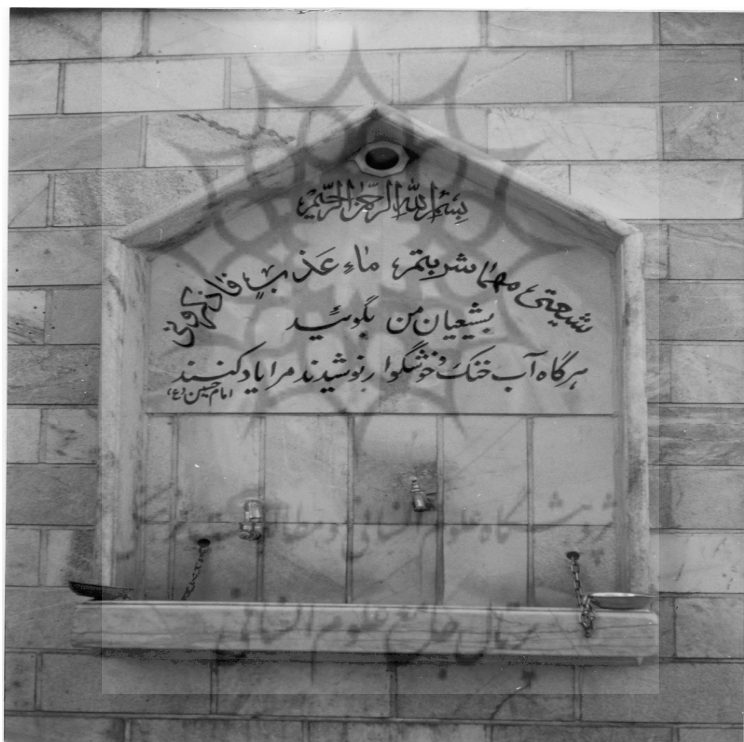 بسم الله الرحمن الرحیم
شیعتی مهما شربتم ماء عذبٍ فاذکرونی
بشیعیان من بگوئید
هرگاه آب خنک و خوشگوار بنوشیدند مرا یاد کنند
امام حسین (ع)
پژوهشگاه علوم انسانی و مطالعات فرهنگی
پرتال جامع علوم انسانی